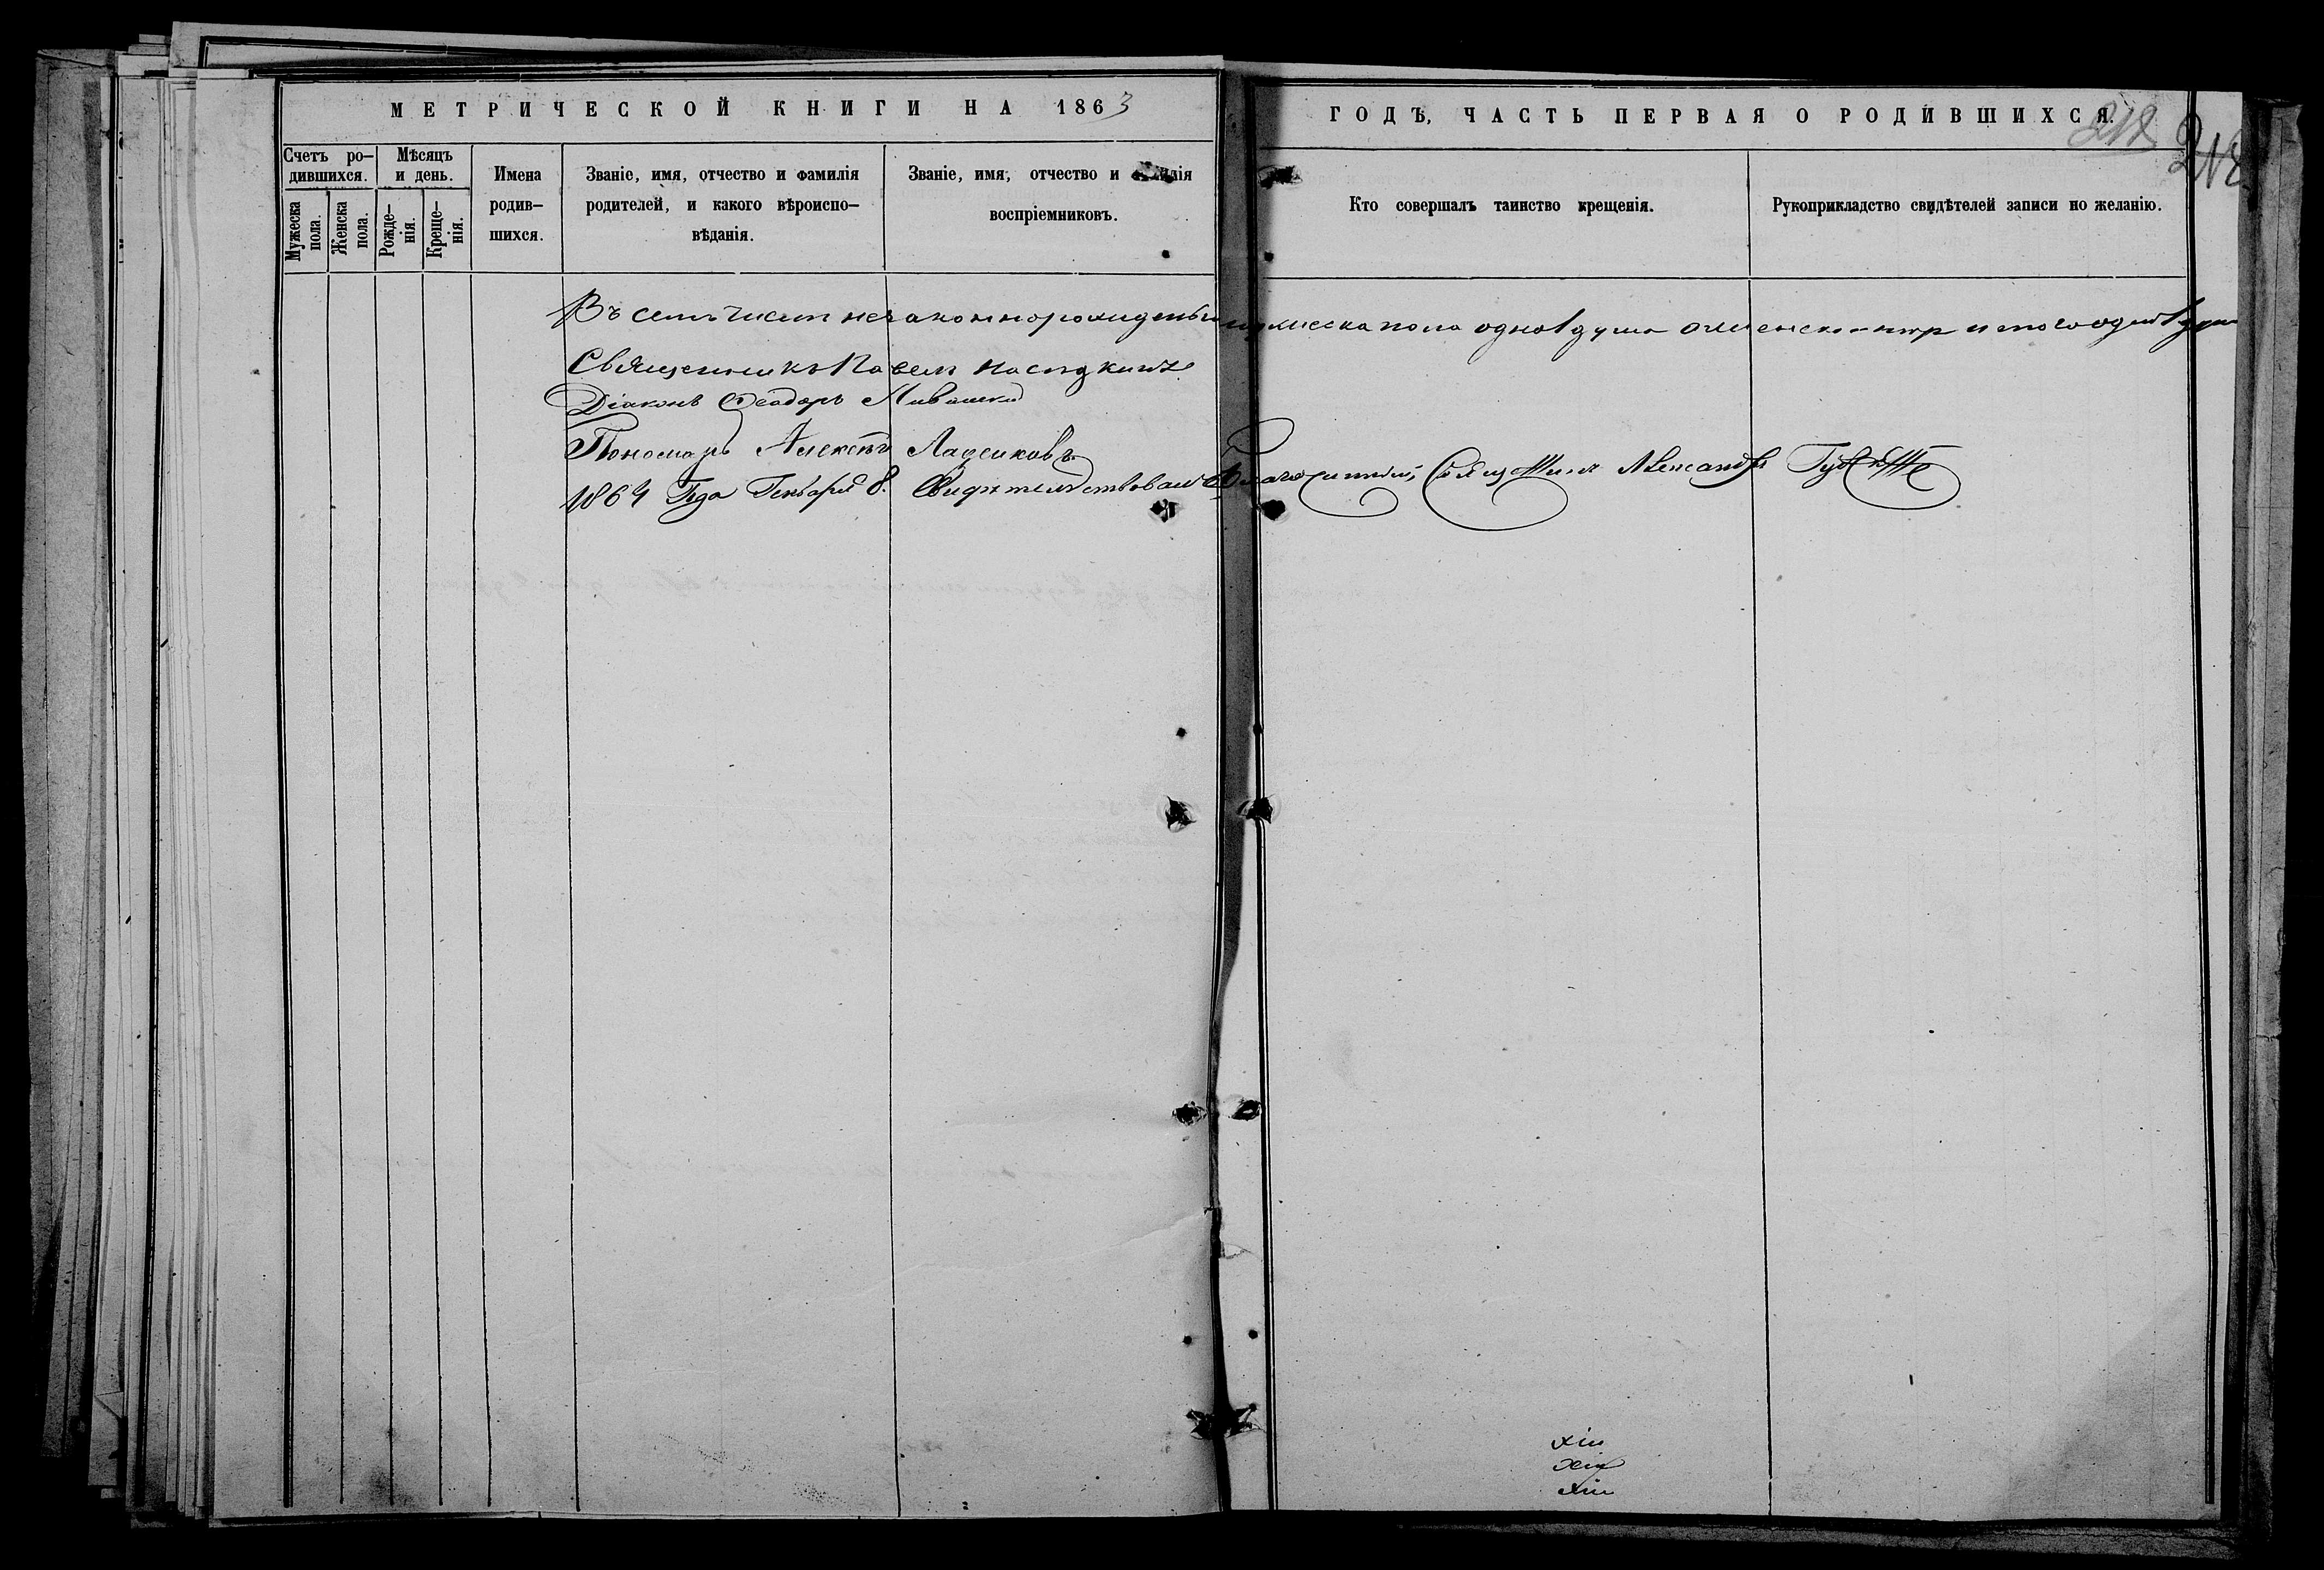 МЕТРИЧЕСКОЙ КНИГИ НА 1863
ГОДЪ, ЧАСТЬ ПЕРВАЯ О РОДИВШИХСЯ.
212
212
Счетъ ро-
дившихся.
Мужеска
пола.
Женска
пола.
Мѣсяцъ
и день.
Рожде-
нія.
Креще-
нія.
Имена
родив-
шихся.
Званіе, имя, отчество и фамилія
родителей, и какого вѣроиспо-
вѣданія.
Званіе, имя, отчество и фамилія
воспріемниковъ.
Кто совершалъ таинство крещенія.
Рукоприкладство свидѣтелей записи по желанію.
Въ семъ числѣ незаконнорожденыхъ мужеска пола одна 1 душа а женска нѣтъ итого одна 1 душа
Священникъ Павелъ
Діаконъ Феодоръ
Пономарь Алексѣй Ладенковъ
1864 Года Генваря 8. Свидѣтельствовалъ Благочинный, Священникъ Александръ